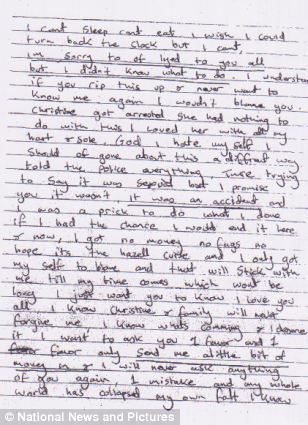 I cant sleep cant eat I wish I could
turn back the clock but I cant,
Im sorry to of lied to you all
but I didn't know what to do. I understand
if you rip this up or never want to
know me again I woudn't blame you.
Christine got arrested she had nothing to
do with this I loved her with all my
hart & sole. God I hate my self I
should of gone about this a diffrant way
told the police everything Trying
to say it was but I promise
you it wasn't it was an accident and
I was a prick to do what I done
if I had the chance I would end it here
& now, I got no money no fags no
hope its the hazell curse and I only got
my self to blame and that will stick with
me till my time comes which wont be
long I just want you to know I love you
all I know Christine & family will never
forgive me, I know whats comming & I deserve
it I want to ask you 1 favor and 1
favor only send me alittle bit of
money I will never ask anything
of you again 1 mistake and my whole
world has collapsed my own falt I know
© National News and Pictures